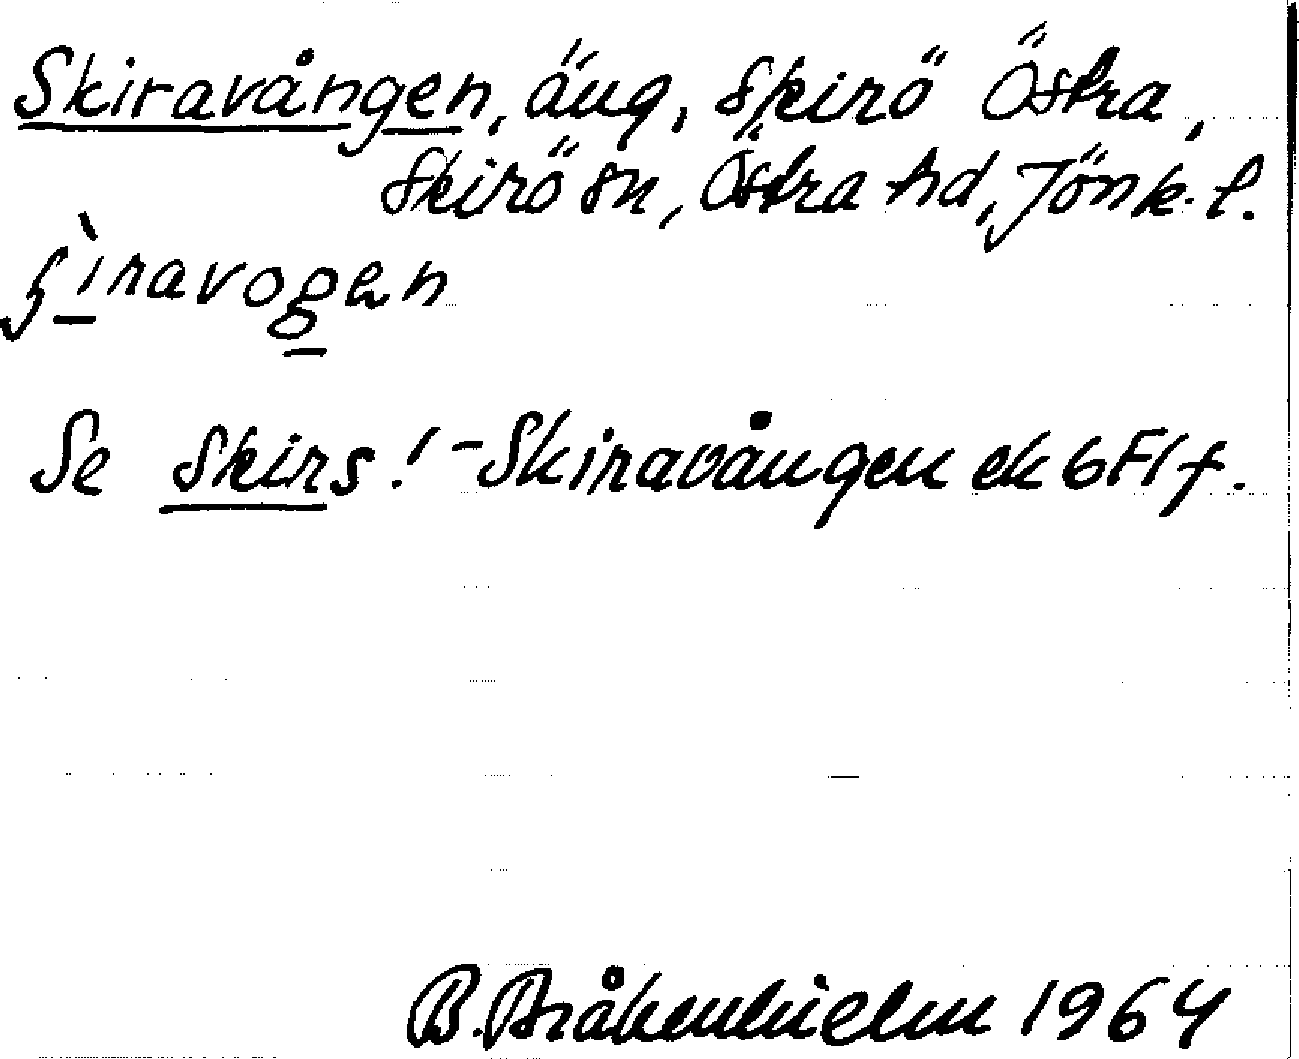 Skiravången, äng, Skirö Östra,
Skirö sn, Östra hd, Jönk. l.
Se Skirs! - Skiravången ek 6F1f.
B. Bråkenhielm 1964